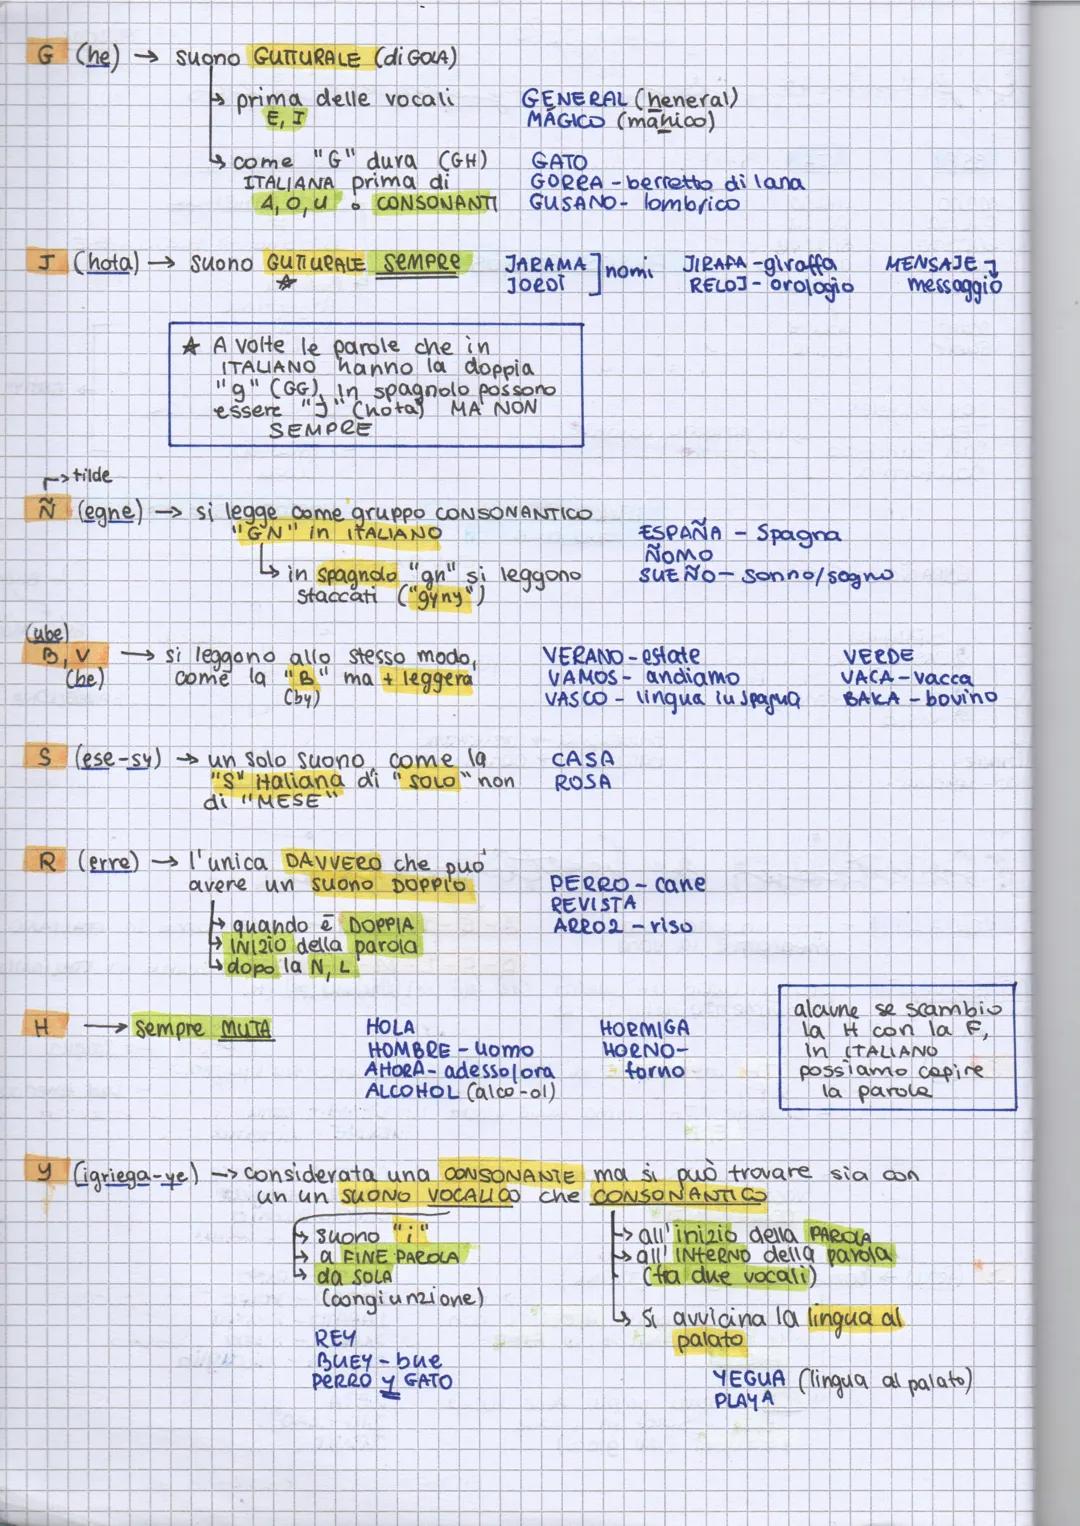 G (he) → suono GUTTURALE (di GOLA)
↳ prima delle vocali GENERAL (heneral)
E, I MÁGICO (mahico)
↳ come "G" dura (GH) GATO
ITALIANA prima di GORRA - berretto di lana
A, O, U o CONSONANTI GUSANO - lombrico
J (hota) → suono GUTTURALE SEMPRE JARAMA ] nomi JIRAFA - giraffa MENSAJE ↴
☆ JORDI RELOJ - orologio messaggio
☆ A volte le parole che in
ITALIANO hanno la doppia
"g" (GG), in spagnolo possono
essere "J" (hota) MA NON
SEMPRE
↱ tilde
Ñ (egne) → si legge come gruppo CONSONANTICO
"GN" in ITALIANO ESPAÑA - Spagna
ÑOMO
↳ in spagnolo "gn" si leggono SUEÑO - sonno/sogno
staccati ("gyny")
(ube)
B, V → si leggono allo stesso modo, VERANO - estate VERDE
(be) come la "B" ma + leggera VAMOS - andiamo VACA - vacca
(by) VASCO - lingua in Spagna BAKA - bovino
S (ese-sy) → un solo suono, come la CASA
"S" italiana di "SOLO" non ROSA
di "MESE"
R (erre) → l'unica DAVVERO che può
avere un suono DOPPIO PERRO - cane
REVISTA
↳ quando è DOPPIA ARROZ - riso
↳ INIZIO della parola
↳ dopo la N, L
H → sempre MUTA HOLA HORMIGA
HOMBRE - uomo HORNO -
AHORA - adesso/ora forno
ALCOHOL (alco-ol)
alcune se scambio
la H con la F,
in ITALIANO
possiamo capire
la parola
Y (igriega-ye) → considerata una CONSONANTE ma si può trovare sia con
un un SUONO VOCALICO che CONSONANTICO
↳ suono "i"
↳ a FINE PAROLA
↳ da SOLA
(congiunzione)
REY
BUEY - bue
PERRO y GATO
↳ all'inizio della PAROLA
↳ all'INTERNO della parola
(fra due vocali)
↳ si avvicina la lingua al
palato
YEGUA (lingua al palato)
PLAYA